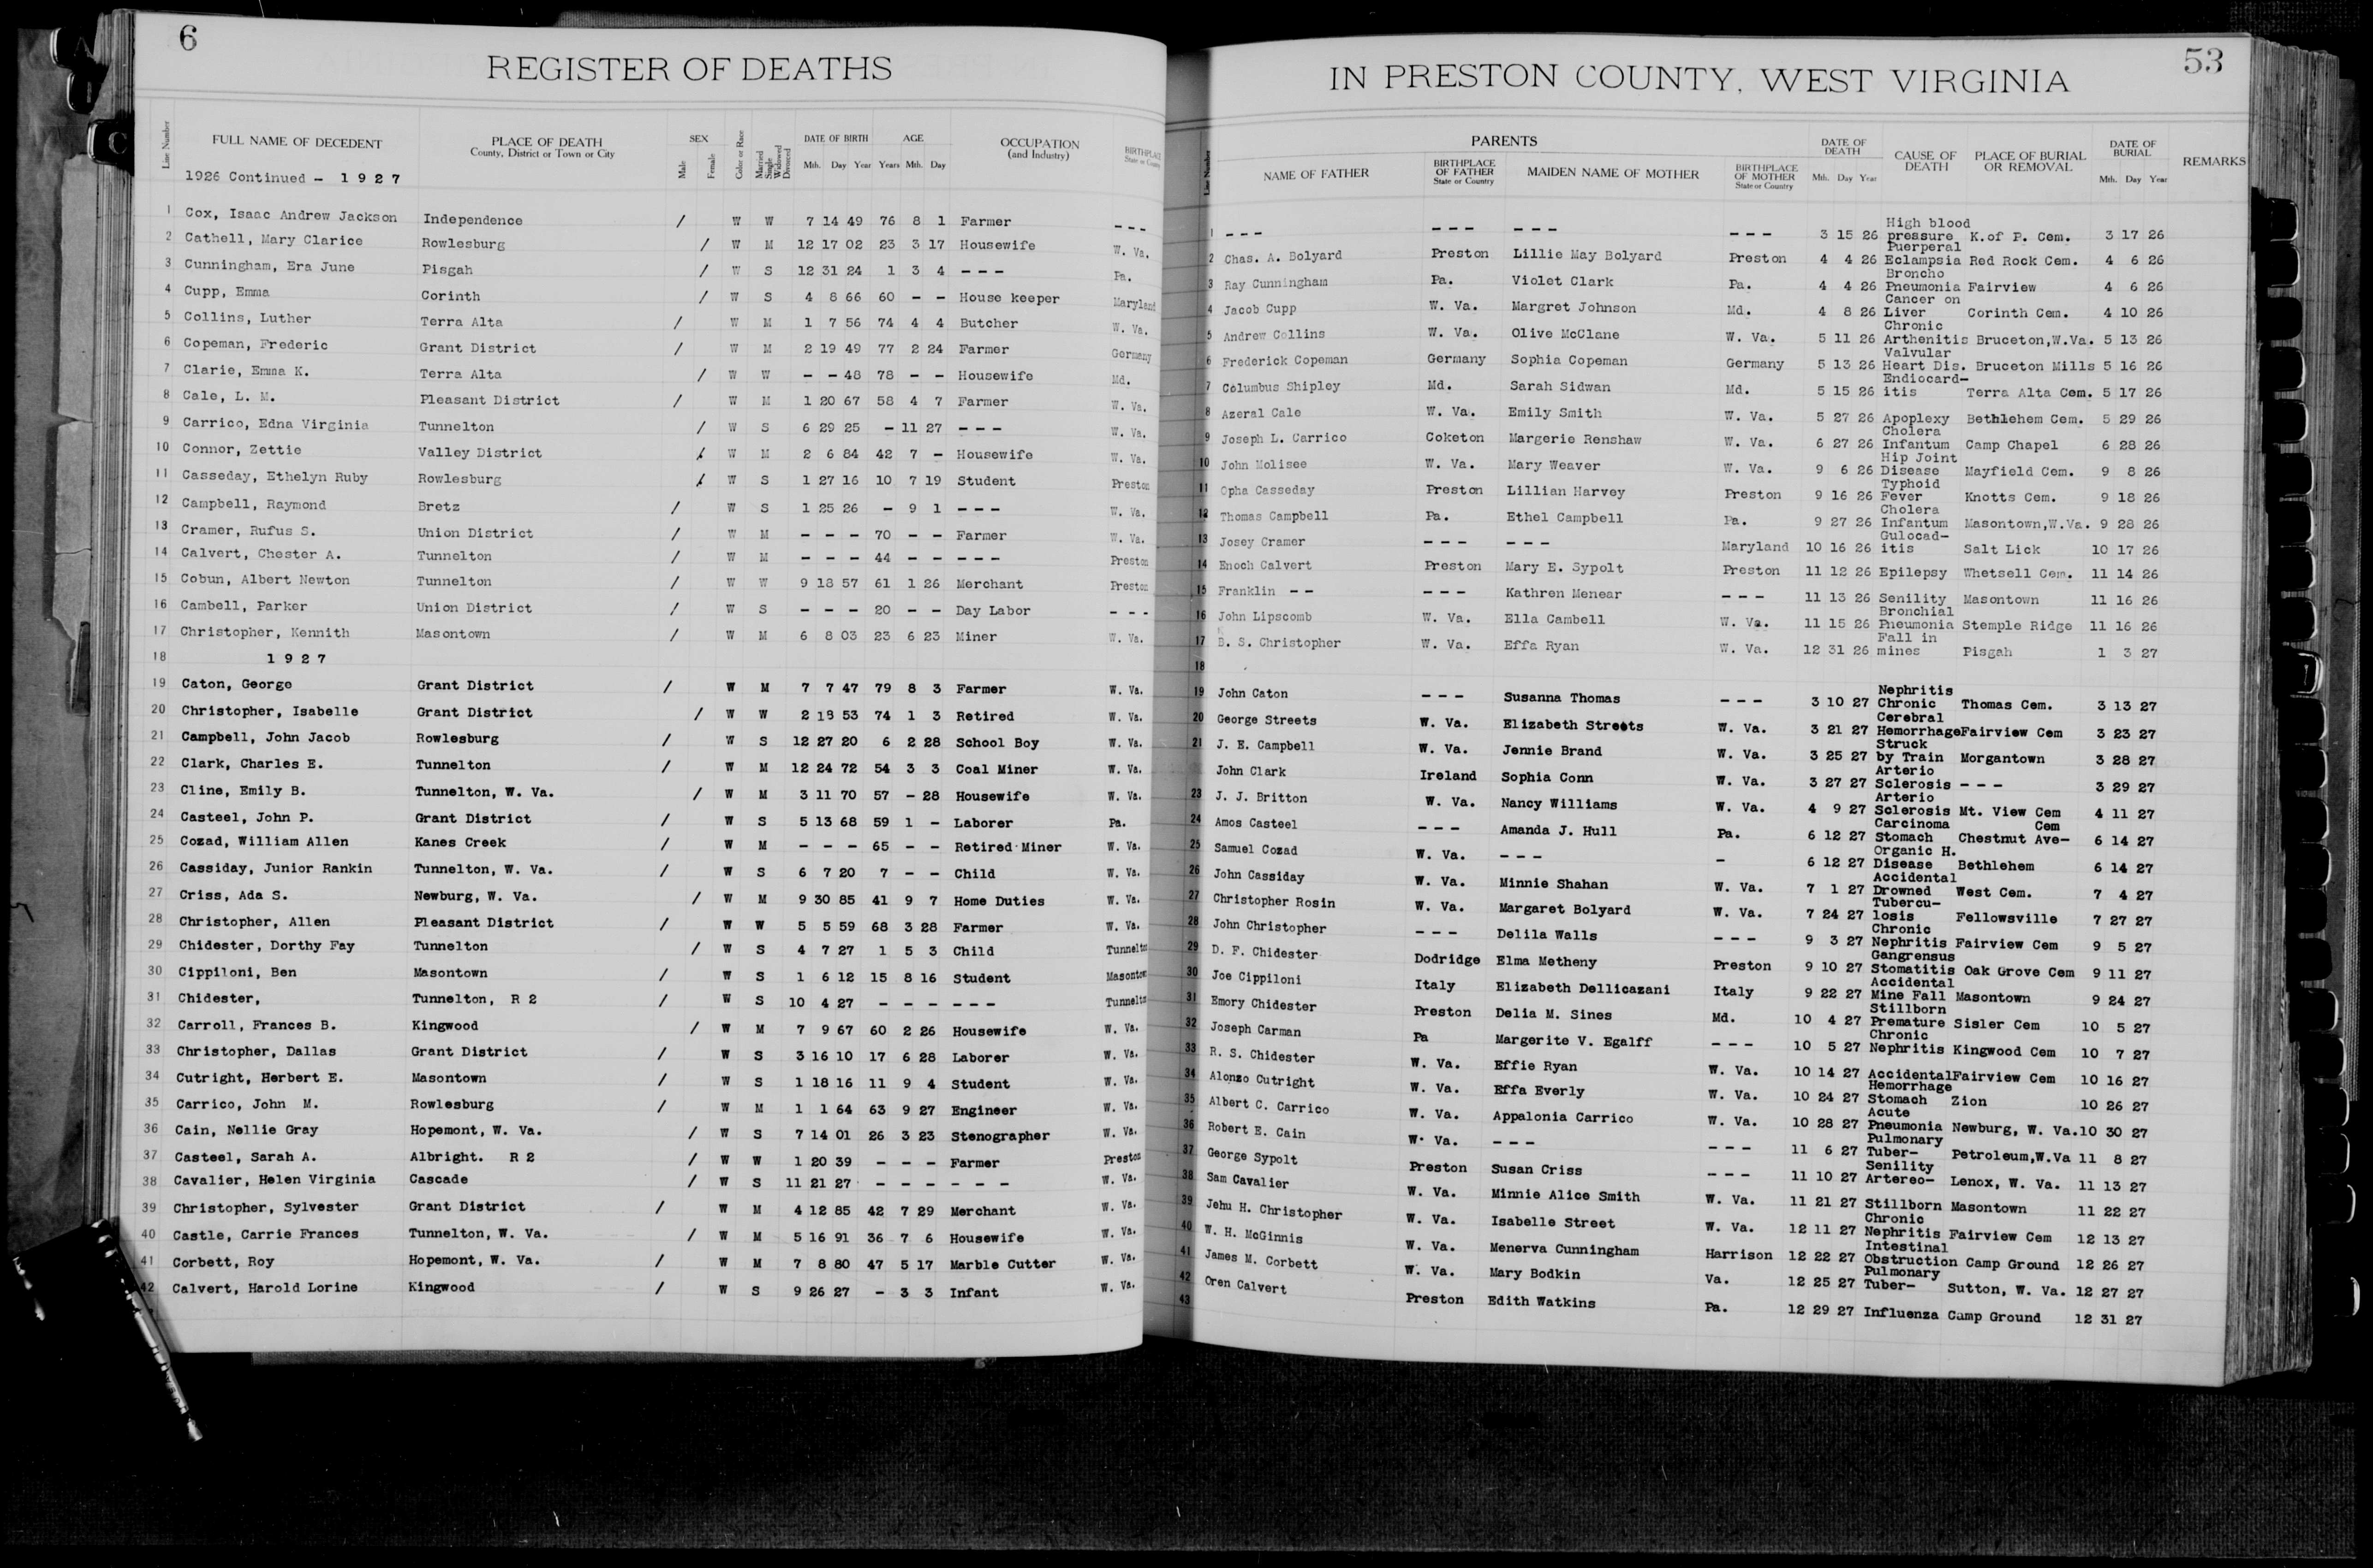 6
REGISTER OF DEATHS
Line Number
FULL NAME OF DECEDENT
PLACE OF DEATH
County, District or Town or City
SEX
Male
Female
Color or Race
Married Single Widowed Divorced
DATE OF BIRTH
Mth. Day Year
AGE
Years Mth. Day
OCCUPATION
(and Industry)
BIRTHPLACE
State or County
1926 Continued - 1 9 2 7
1 Cox, Isaac Andrew Jackson Independence / W W 7 14 49 76 8 1 Farmer - - -
2 Cathell, Mary Clarice Rowlesburg / W M 12 17 02 23 3 17 Housewife W. Va.
3 Cunningham, Era June Pisgah / W S 12 31 24 1 3 4 - - - Pa.
4 Cupp, Emma Corinth / W S 4 8 66 60 - - House keeper Maryland
5 Collins, Luther Terra Alta / W M 1 7 56 74 4 4 Butcher W. Va.
6 Copeman, Frederic Grant District / W M 2 19 49 77 2 24 Farmer Germany
7 Clarie, Emma K. Terra Alta / W W - - 48 78 - - Housewife Md.
8 Cale, L. M. Pleasant District / W M 1 20 67 58 4 7 Farmer W. Va.
9 Carrico, Edna Virginia Tunnelton / W S 6 29 25 - 11 27 - - - W. Va.
10 Connor, Zettie Valley District / W M 2 6 84 42 7 - Housewife W. Va.
11 Casseday, Ethelyn Ruby Rowlesburg / W S 1 27 16 10 7 19 Student Preston
12 Campbell, Raymond Bretz / W S 1 25 26 - 9 1 - - - W. Va.
13 Cramer, Rufus S. Union District / W M - - - 70 - - Farmer W. Va.
14 Calvert, Chester A. Tunnelton / W M - - - 44 - - - - - Preston
15 Cobun, Albert Newton Tunnelton / W W 9 18 57 61 1 26 Merchant Preston
16 Cambell, Parker Union District / W S - - - 20 - - Day Labor - - -
17 Christopher, Kennith Masontown / W M 6 8 03 23 6 23 Miner W. Va.
18 1 9 2 7
19 Caton, George Grant District / W M 7 7 47 79 8 3 Farmer W. Va.
20 Christopher, Isabelle Grant District / W W 2 18 53 74 1 3 Retired W. Va.
21 Campbell, John Jacob Rowlesburg / W S 12 27 20 6 2 28 School Boy W. Va.
22 Clark, Charles E. Tunnelton / W M 12 24 72 54 3 3 Coal Miner W. Va.
23 Cline, Emily B. Tunnelton, W. Va. / W M 3 11 70 57 - 28 Housewife W. Va.
24 Casteel, John P. Grant District / W S 5 13 68 59 1 - Laborer Pa.
25 Cozad, William Allen Kanes Creek / W M - - - 65 - - Retired Miner W. Va.
26 Cassiday, Junior Rankin Tunnelton, W. Va. / W S 6 7 20 7 - - Child W. Va.
27 Criss, Ada S. Newburg, W. Va. / W M 9 30 85 41 9 7 Home Duties W. Va.
28 Christopher, Allen Pleasant District / W W 5 5 59 68 3 28 Farmer W. Va.
29 Chidester, Dorthy Fay Tunnelton / W S 4 7 27 1 5 3 Child Tunnelton
30 Cippiloni, Ben Masontown / W S 1 6 12 15 8 16 Student Masontown
31 Chidester, Tunnelton, R 2 / W S 10 4 27 - - - - - - Tunnelton
32 Carroll, Frances B. Kingwood / W M 7 9 67 60 2 26 Housewife W. Va.
33 Christopher, Dallas Grant District / W S 3 16 10 17 6 28 Laborer W. Va.
34 Cutright, Herbert E. Masontown / W S 1 18 16 11 9 4 Student W. Va.
35 Carrico, John M. Rowlesburg / W M 1 1 64 63 9 27 Engineer W. Va.
36 Cain, Nellie Gray Hopemont, W. Va. / W S 7 14 01 26 3 23 Stenographer W. Va.
37 Casteel, Sarah A. Albright. R 2 / W W 1 20 39 - - - Farmer Preston
38 Cavalier, Helen Virginia Cascade / W S 11 21 27 - - - - - - W. Va.
39 Christopher, Sylvester Grant District / W M 4 12 85 42 7 29 Merchant W. Va.
40 Castle, Carrie Frances Tunnelton, W. Va. / W M 5 16 91 36 7 6 Housewife W. Va.
41 Corbett, Roy Hopemont, W. Va. / W M 7 8 80 47 5 17 Marble Cutter W. Va.
42 Calvert, Harold Lorine Kingwood / W S 9 26 27 - 3 3 Infant W. Va.
53
IN PRESTON COUNTY, WEST VIRGINIA
Line Number
PARENTS
NAME OF FATHER
BIRTHPLACE OF FATHER
State or Country
MAIDEN NAME OF MOTHER
BIRTHPLACE OF MOTHER
State or Country
DATE OF DEATH
Mth. Day Year
CAUSE OF DEATH
PLACE OF BURIAL OR REMOVAL
DATE OF BURIAL
Mth. Day Year
REMARKS
1 - - - - - - - - - - - - 3 15 26 High blood pressure K.of P. Cem. 3 17 26
2 Chas. A. Bolyard Preston Lillie May Bolyard Preston 4 4 26 Puerperal Eclampsia Red Rock Cem. 4 6 26
3 Ray Cunningham Pa. Violet Clark Pa. 4 4 26 Broncho Pneumonia Fairview 4 6 26
4 Jacob Cupp W. Va. Margret Johnson Md. 4 8 26 Cancer on Liver Corinth Cem. 4 10 26
5 Andrew Collins W. Va. Olive McClane W. Va. 5 11 26 Chronic Arthenitis Bruceton,W.Va. 5 13 26
6 Frederick Copeman Germany Sophia Copeman Germany 5 13 26 Valvular Heart Dis. Bruceton Mills 5 16 26
7 Columbus Shipley Md. Sarah Sidwan Md. 5 15 26 Endiocard- itis Terra Alta Cem. 5 17 26
8 Azeral Cale W. Va. Emily Smith W. Va. 5 27 26 Apoplexy Bethlehem Cem. 5 29 26
9 Joseph L. Carrico Coketon Margerie Renshaw W. Va. 6 27 26 Cholera Infantum Camp Chapel 6 28 26
10 John Molisee W. Va. Mary Weaver W. Va. 9 6 26 Hip Joint Disease Mayfield Cem. 9 8 26
11 Opha Casseday Preston Lillian Harvey Preston 9 16 26 Typhoid Fever Knotts Cem. 9 18 26
12 Thomas Campbell Pa. Ethel Campbell Pa. 9 27 26 Cholera Infantum Masontown,W.Va. 9 28 26
13 Josey Cramer - - - - - - Maryland 10 16 26 Gulocad- itis Salt Lick 10 17 26
14 Enoch Calvert Preston Mary E. Sypolt Preston 11 12 26 Epilepsy Whetsell Cem. 11 14 26
15 Franklin - - - - - Kathren Menear - - - 11 13 26 Senility Masontown 11 16 26
16 John Lipscomb W. Va. Ella Cambell W. Va. 11 15 26 Bronchial Pneumonia Stemple Ridge 11 16 26
17 B. S. Christopher W. Va. Effa Ryan W. Va. 12 31 26 Fall in mines Pisgah 1 3 27
18
19 John Caton - - - Susanna Thomas - - - 3 10 27 Nephritis Chronic Thomas Cem. 3 13 27
20 George Streets W. Va. Elizabeth Streets W. Va. 3 21 27 Cerebral Hemorrhage Fairview Cem 3 23 27
21 J. E. Campbell W. Va. Jennie Brand W. Va. 3 25 27 Struck by Train Morgantown 3 28 27
John Clark Ireland Sophia Conn W. Va. 3 27 27 Arterio Sclerosis - - - 3 29 27
23 J. J. Britton W. Va. Nancy Williams W. Va. 4 9 27 Arterio Sclerosis Mt. View Cem 4 11 27
24 Amos Casteel - - - Amanda J. Hull Pa. 6 12 27 Carcinoma Stomach Chestnut Ave- Cem 6 14 27
25 Samuel Cozad W. Va. - - - - 6 12 27 Organic H. Disease Bethlehem 6 14 27
26 John Cassiday W. Va. Minnie Shahan W. Va. 7 1 27 Accidental Drowned West Cem. 7 4 27
27 Christopher Rosin W. Va. Margaret Bolyard W. Va. 7 24 27 Tubercu- losis Fellowsville 7 27 27
28 John Christopher - - - Delila Walls - - - 9 3 27 Chronic Nephritis Fairview Cem 9 5 27
29 D. F. Chidester Dodridge Elma Metheny Preston 9 10 27 Gangrensus Stomatitis Oak Grove Cem 9 11 27
30 Joe Cippiloni Italy Elizabeth Dellicazani Italy 9 22 27 Accidental Mine Fall Masontown 9 24 27
31 Emory Chidester Preston Delia M. Sines Md. 10 4 27 Stillborn Premature Sisler Cem 10 5 27
32 Joseph Carman Pa Margerite V. Egalff - - - 10 5 27 Chronic Nephritis Kingwood Cem 10 7 27
33 R. S. Chidester W. Va. Effie Ryan W. Va. 10 14 27 Accidental Fairview Cem 10 16 27
34 Alonzo Cutright W. Va. Effa Everly W. Va. 10 24 27 Hemorrhage Stomach Zion 10 26 27
35 Albert C. Carrico W. Va. Appalonia Carrico W. Va. 10 28 27 Acute Pneumonia Newburg, W. Va. 10 30 27
36 Robert E. Cain W. Va. - - - - - - 11 6 27 Pulmonary Tuber- Petroleum,W.Va 11 8 27
37 George Sypolt Preston Susan Criss - - - 11 10 27 Senility Artereo- Lenox, W. Va. 11 13 27
38 Sam Cavalier W. Va. Minnie Alice Smith W. Va. 11 21 27 Stillborn Masontown 11 22 27
39 Jehu H. Christopher W. Va. Isabelle Street W. Va. 12 11 27 Chronic Nephritis Fairview Cem 12 13 27
40 W. H. McGinnis W. Va. Menerva Cunningham Harrison 12 22 27 Intestinal Obstruction Camp Ground 12 26 27
41 James M. Corbett W. Va. Mary Bodkin Va. 12 25 27 Pulmonary Tuber- Sutton, W. Va. 12 27 27
42 Oren Calvert Preston Edith Watkins Pa. 12 29 27 Influenza Camp Ground 12 31 27
43